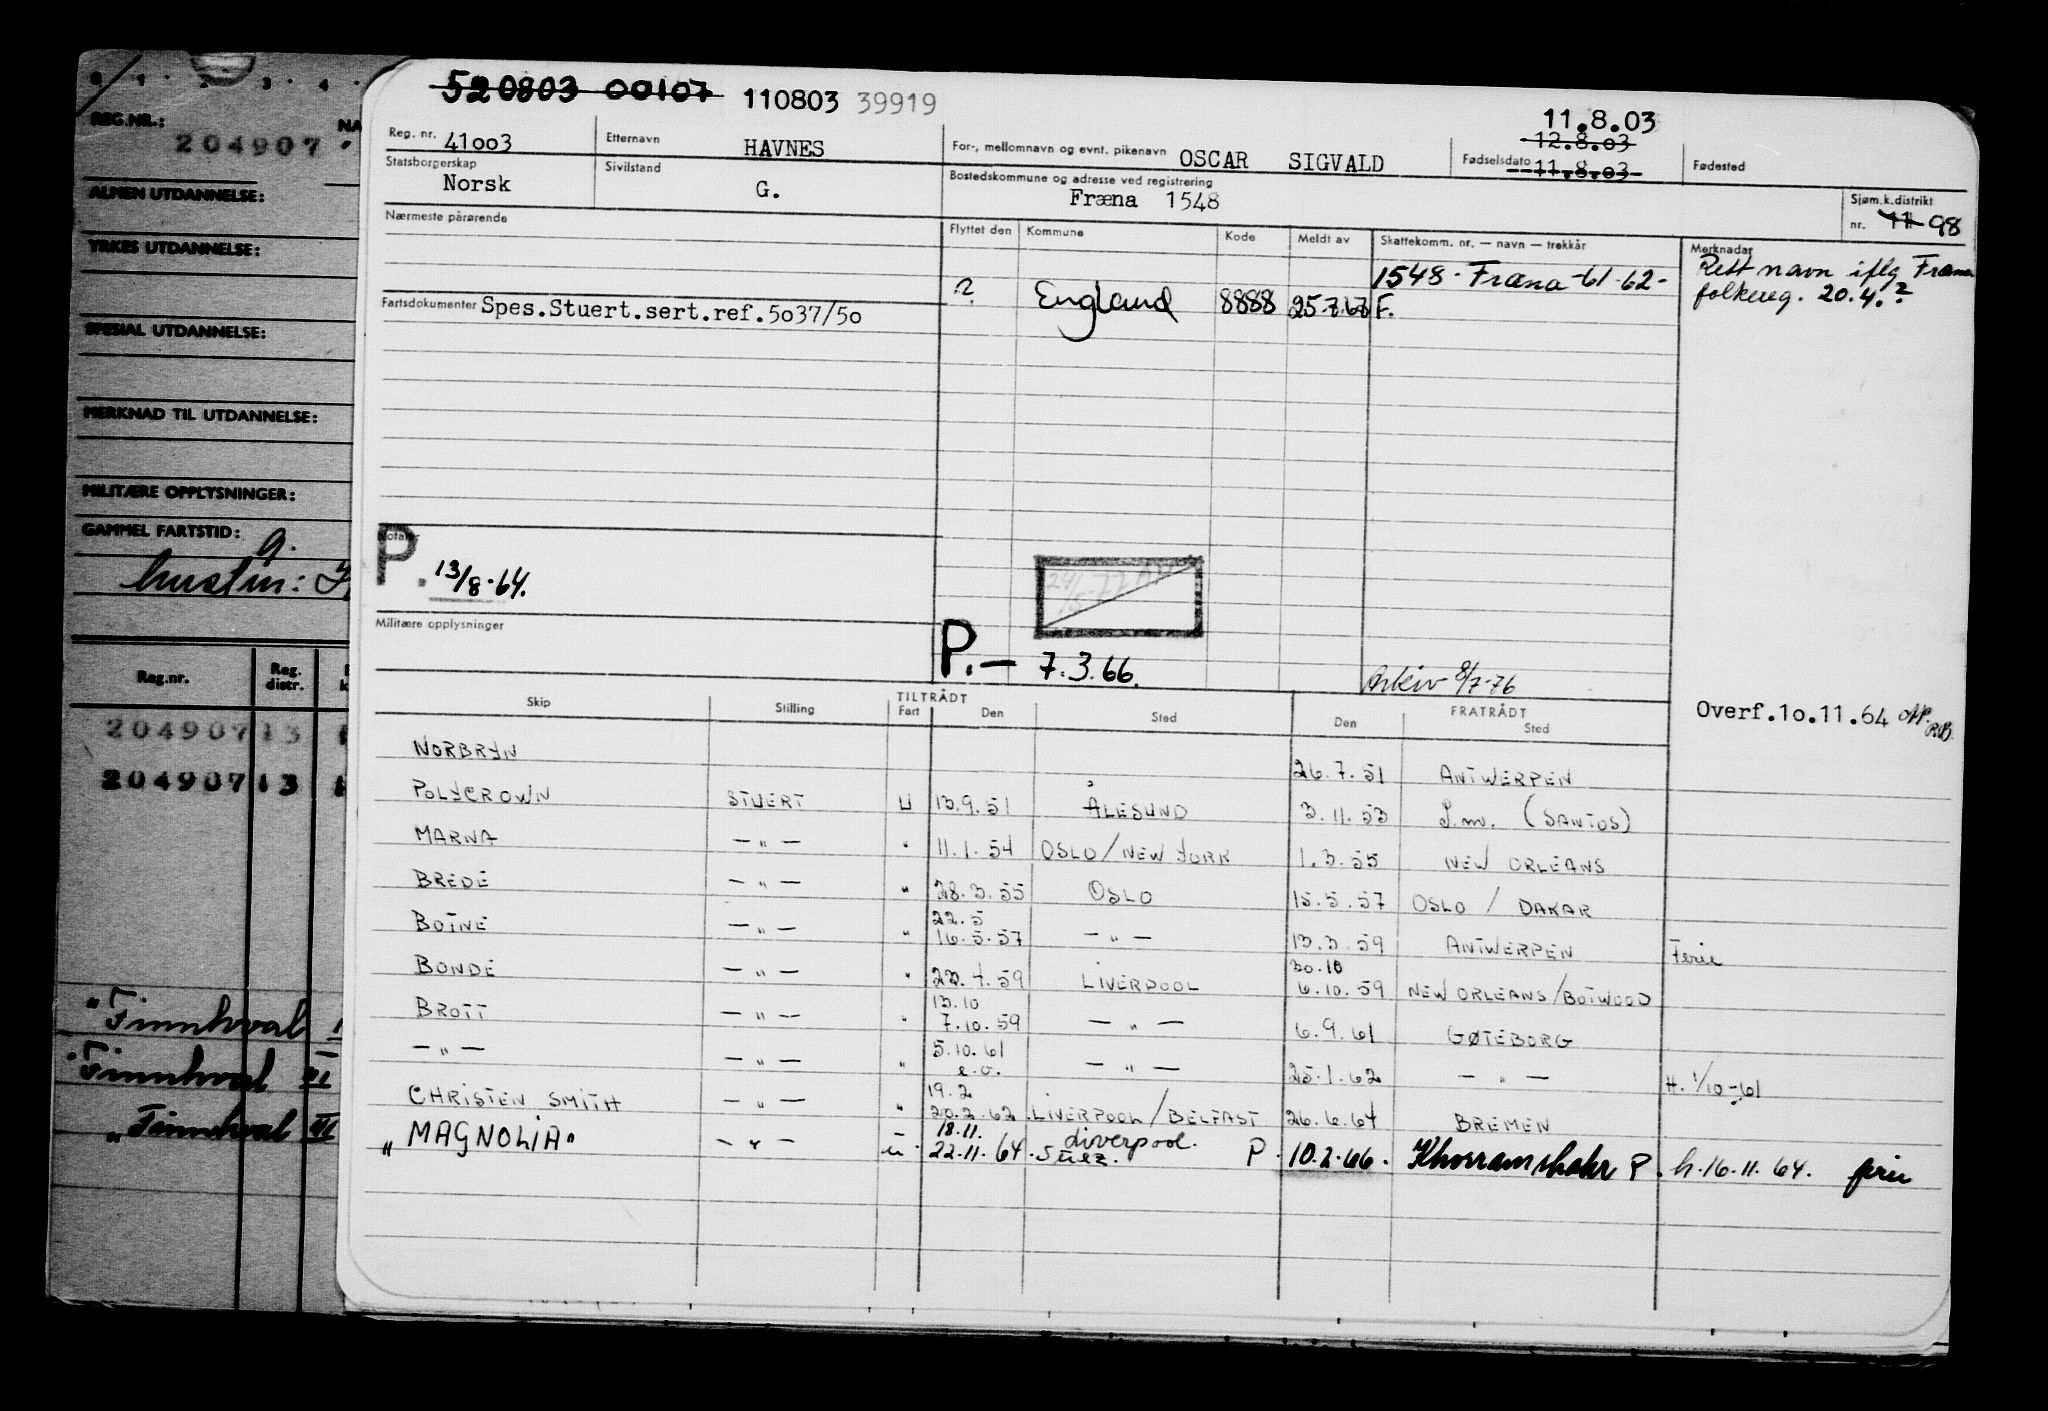 520803 00107 110803 39919
11.8.03
12.8.03
11.8.03
Reg. nr. 41003
Etternavn HAVNES
For-, mellomnavn og evnt. pikenavn OSCAR SIGVALD
Fødselsdato
Fødested
Statsborgerskap Norsk
Sivilstand G.
Bostedskommune og adresse ved registrering Fræna 1548
Sjøm.k.distrikt nr. 11 98
Nærmeste pårørende
Flyttet den Kommune Kode Meldt av Skattekomm. nr. — navn — trekkår Merknadar
1548 - Fræna -61-62-
? England 8888 25.7.67 F.
Rett navn iflg Fræna
folkereg. 20.4.?
Fartsdokumenter Spes.Stuert.sert.ref.5037/50
Notater
P. 13/8-64.
Militære opplysninger
P.— 7.3.66.
Arkiv 8/7-76
Overf.10.11.64
TILTRÅDT FRATRÅDT
Skip Stilling Fart Den Sted Den Sted
NORBRYN 26.7.51 ANTWERPEN
POLYCROWN STUERT U 13.9.51 ÅLESUND 3.11.53 S.m. (SANTOS)
MARNA — " — " 11.1.54 OSLO / NEW YORK 1.3.55 NEW ORLEANS
BREDE — " — " 28.3.55 OSLO 15.5.57 OSLO / DAKAR
22.5
BOTNE — " — " 16.5.57 — " — 13.3.59 ANTWERPEN Ferie
30.10
BONDE — " — " 22.4.59 LIVERPOOL 6.10.59 NEW ORLEANS/BOTWOOD
13.10
BROTT — " — " 7.10.59 — " — 6.9.61 GØTEBORG
5.10.61
— " — — " — " e.o. — " — 25.1.62 — " — H. 1/10-61
19.2
CHRISTEN SMITH — " — " 20.2.62 LIVERPOOL / BELFAST 26.6.64 BREMEN
18.11. Liverpool.
"MAGNOLIA" — " — u 22.11.64 Suez. P. 10.2.66. Khorramshahr P. h.16.11.64. ferie
REG.NR.: 204907
NA
ALMEN UTDANNELSE:
YRKES UTDANNELSE:
SPESIAL UTDANNELSE:
MERKNAD TIL UTDANNELSE:
MILITÆRE OPPLYSNINGER:
GAMMEL FARTSTID:
g.
hustru:
Reg.nr. Reg. distr.
204907 13
204907 13
"Finnhval
"Finnhval VI
"Finnhval